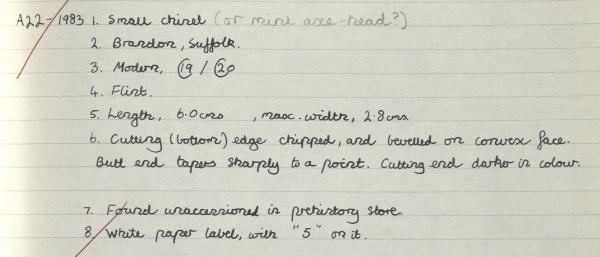 A22-1983 1. Small chisel (or mini axe-head?)
2. Brandon, Suffolk.
3. Modern, 19 / 20
4. Flint.
5. Length, 6.0cms , max. width, 2.8cms
6. Cutting (bottom) edge chipped, and bevelled on convex face.
Butt end tapers sharply to a point. Cutting end darker in colour.
7. Found unaccessioned in prehistory store.
8. White paper label, with "5" on it.